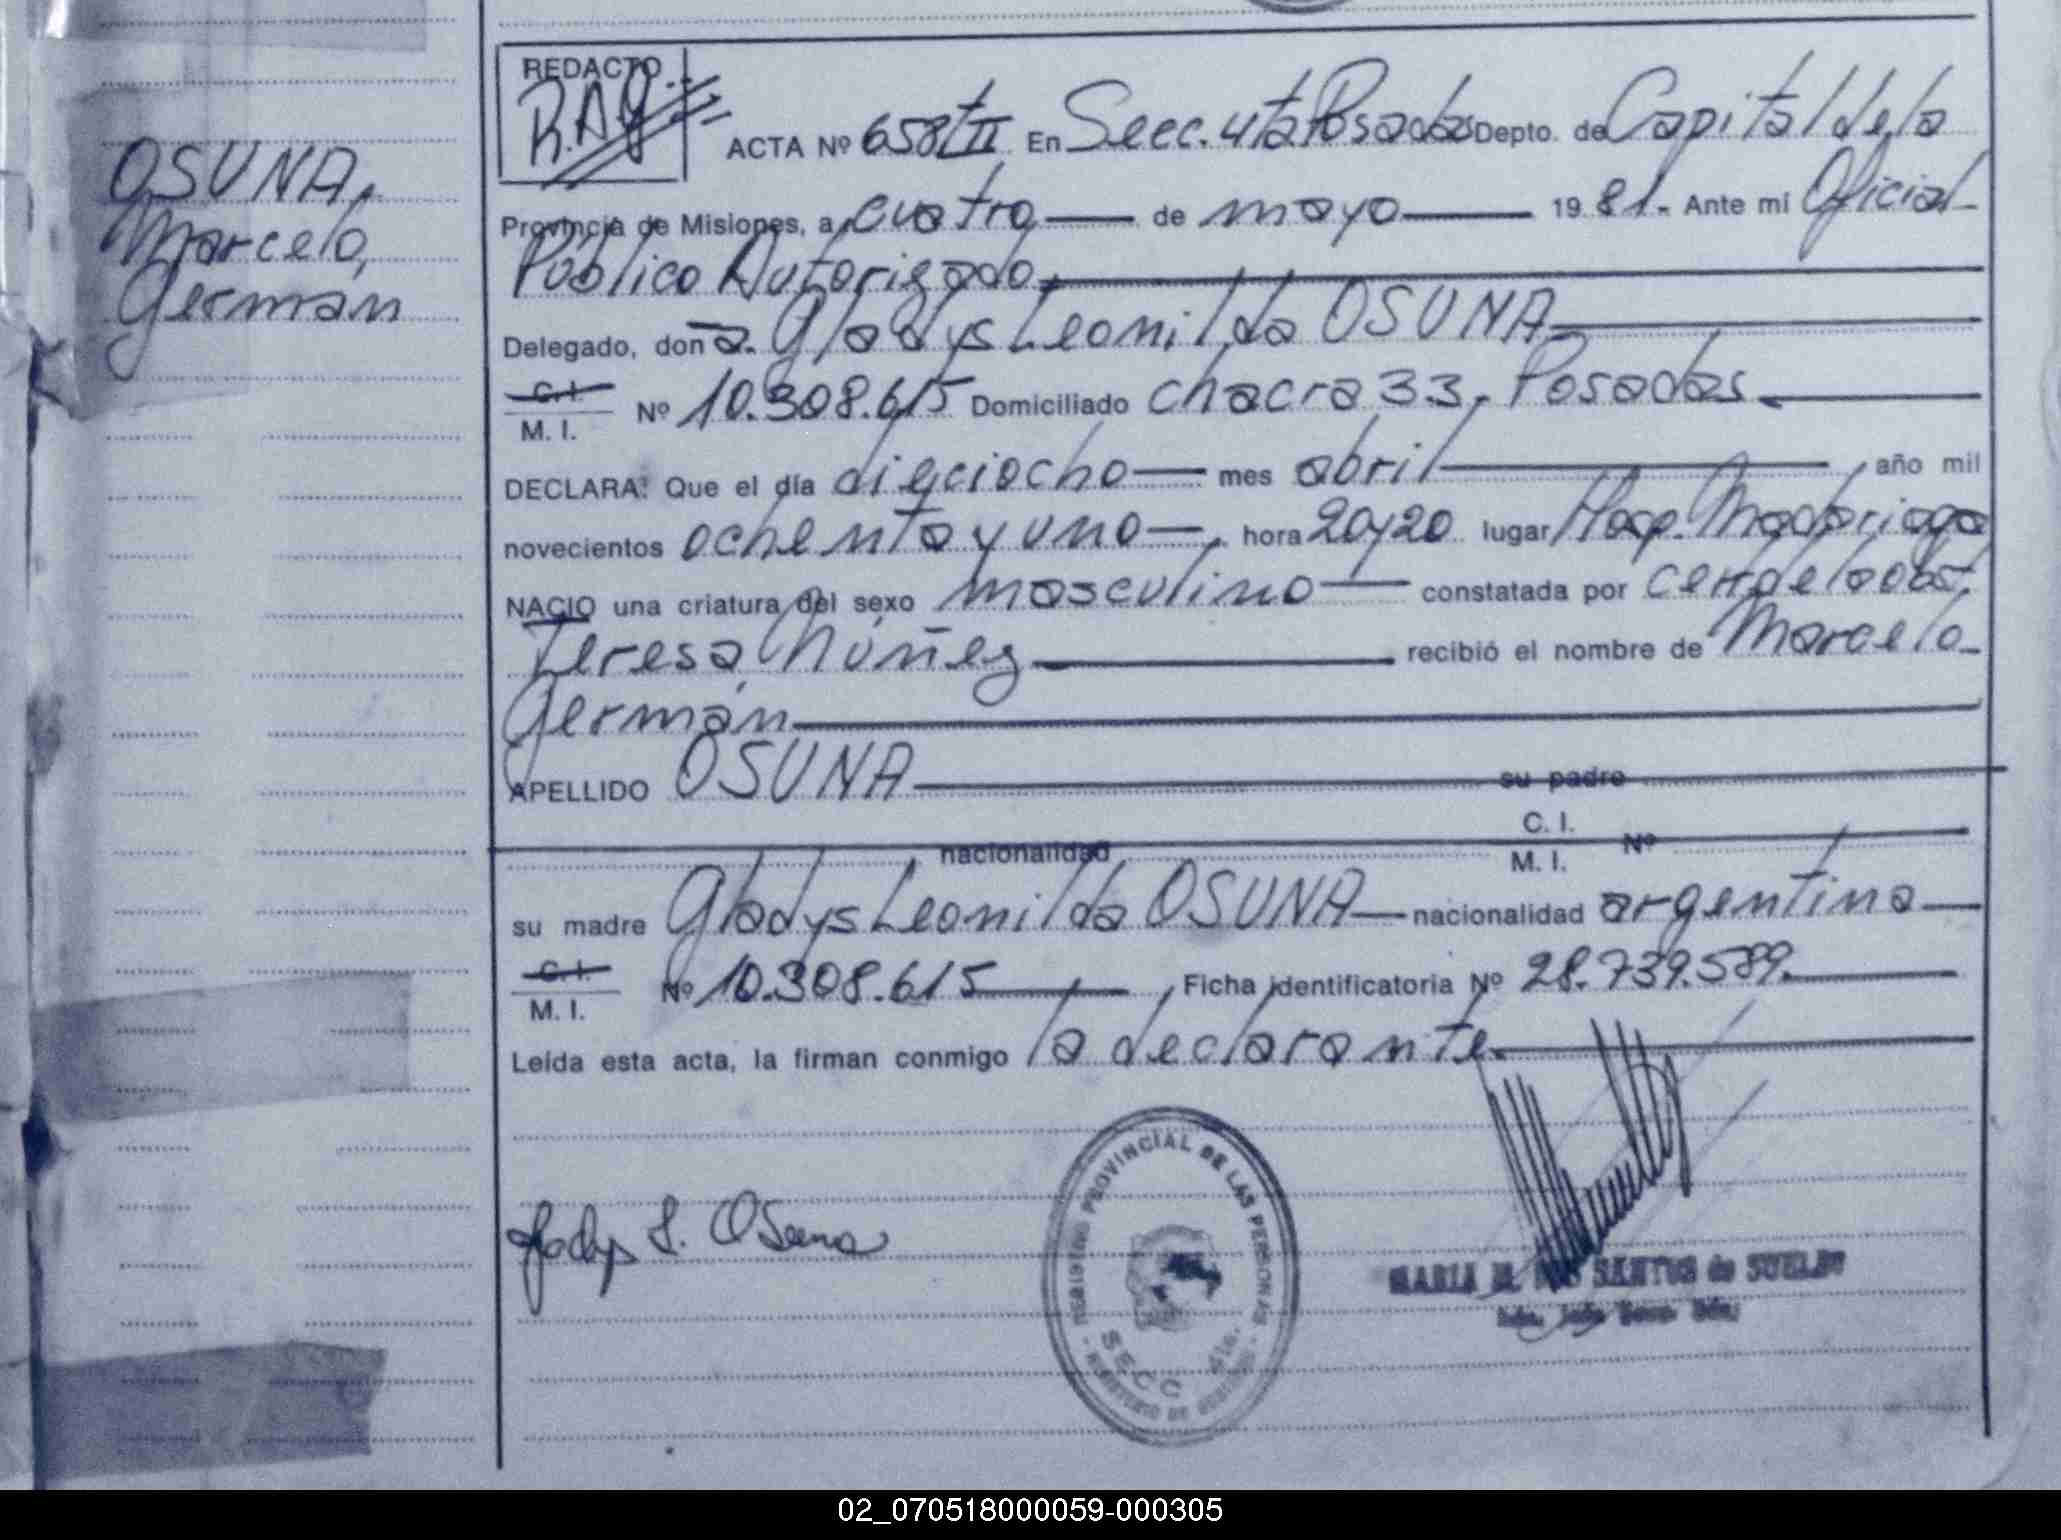 OSUNA,
Marcelo,
Germán
REDACTO
R.A.G.
ACTA Nº 658 tII En Secc. 4ta Posadas Depto. de Capital de la
Provincia de Misiones, a cuatro de mayo 1981.- Ante mi Oficial
Público Autorizado
Delegado, doña. Gladys Leonilda OSUNA
C. I.
M. I.
Nº 10.308.615 Domiciliado chacra 33, Posadas.
DECLARA: Que el día dieciocho mes abril año mil
novecientos ochenta y uno, hora 20y20 lugar Hosp. Madariaga
NACIO una criatura del sexo masculino constatada por cert de la obst.
Teresa Núñez recibió el nombre de Marcelo
Germán
APELLIDO OSUNA su padre
nacionalidad C. I. M. I. Nº
su madre Gladys Leonilda OSUNA nacionalidad argentina
C. I.
M. I.
Nº 10.308.615 Ficha identificatoria Nº 28.739.589.
Leida esta acta, la firman conmigo la declarante.
Gladys L. Osuna
REGISTRO PROVINCIAL DE LAS PERSONAS
SECC. 4ta.
MINISTERIO DE GOBIERNO
MARIA M. SANTOS de
02_070518000059-000305